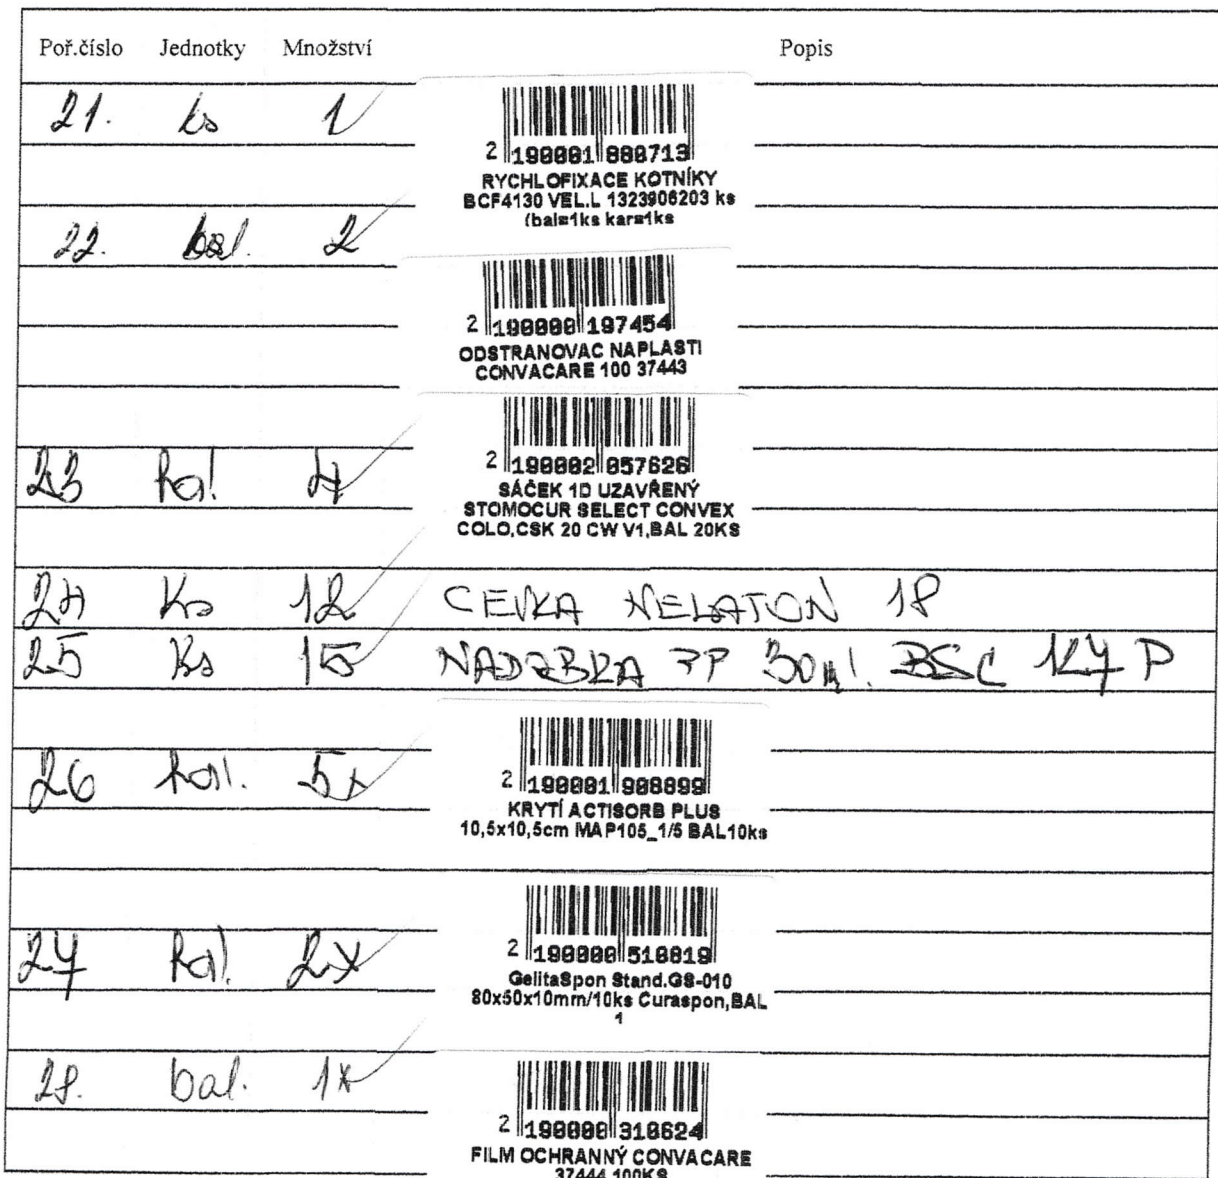 Poř.číslo Jednotky Množství Popis
21. ks 1
2 190001 880713
RYCHLOFIXACE KOTNÍKY
BCF4130 VEL.L 1323906203 ks
(bal=1ks kar=1ks
22. bal. 2
2 190000 197454
ODSTRANOVAC NAPLASTI
CONVACARE 100 37443
23 bal. 4
2 190002 057626
SÁČEK 1D UZAVŘENÝ
STOMOCUR SELECT CONVEX
COLO,CSK 20 CW V1,BAL 20KS
24 Ks 12 CEVKA NELATON 18
25 Ks 15 NADOBKA PP 30ml.
26 bal. 5x
2 190001 908899
KRYTÍ ACTISORB PLUS
10,5x10,5cm MAP105_1/5 BAL10ks
27 bal. 2x
2 190000 510819
GelitaSpon Stand.GS-010
80x50x10mm/10ks Curaspon,BAL
1
28. bal. 1x
2 190000 310624
FILM OCHRANNÝ CONVACARE
37444 100KS